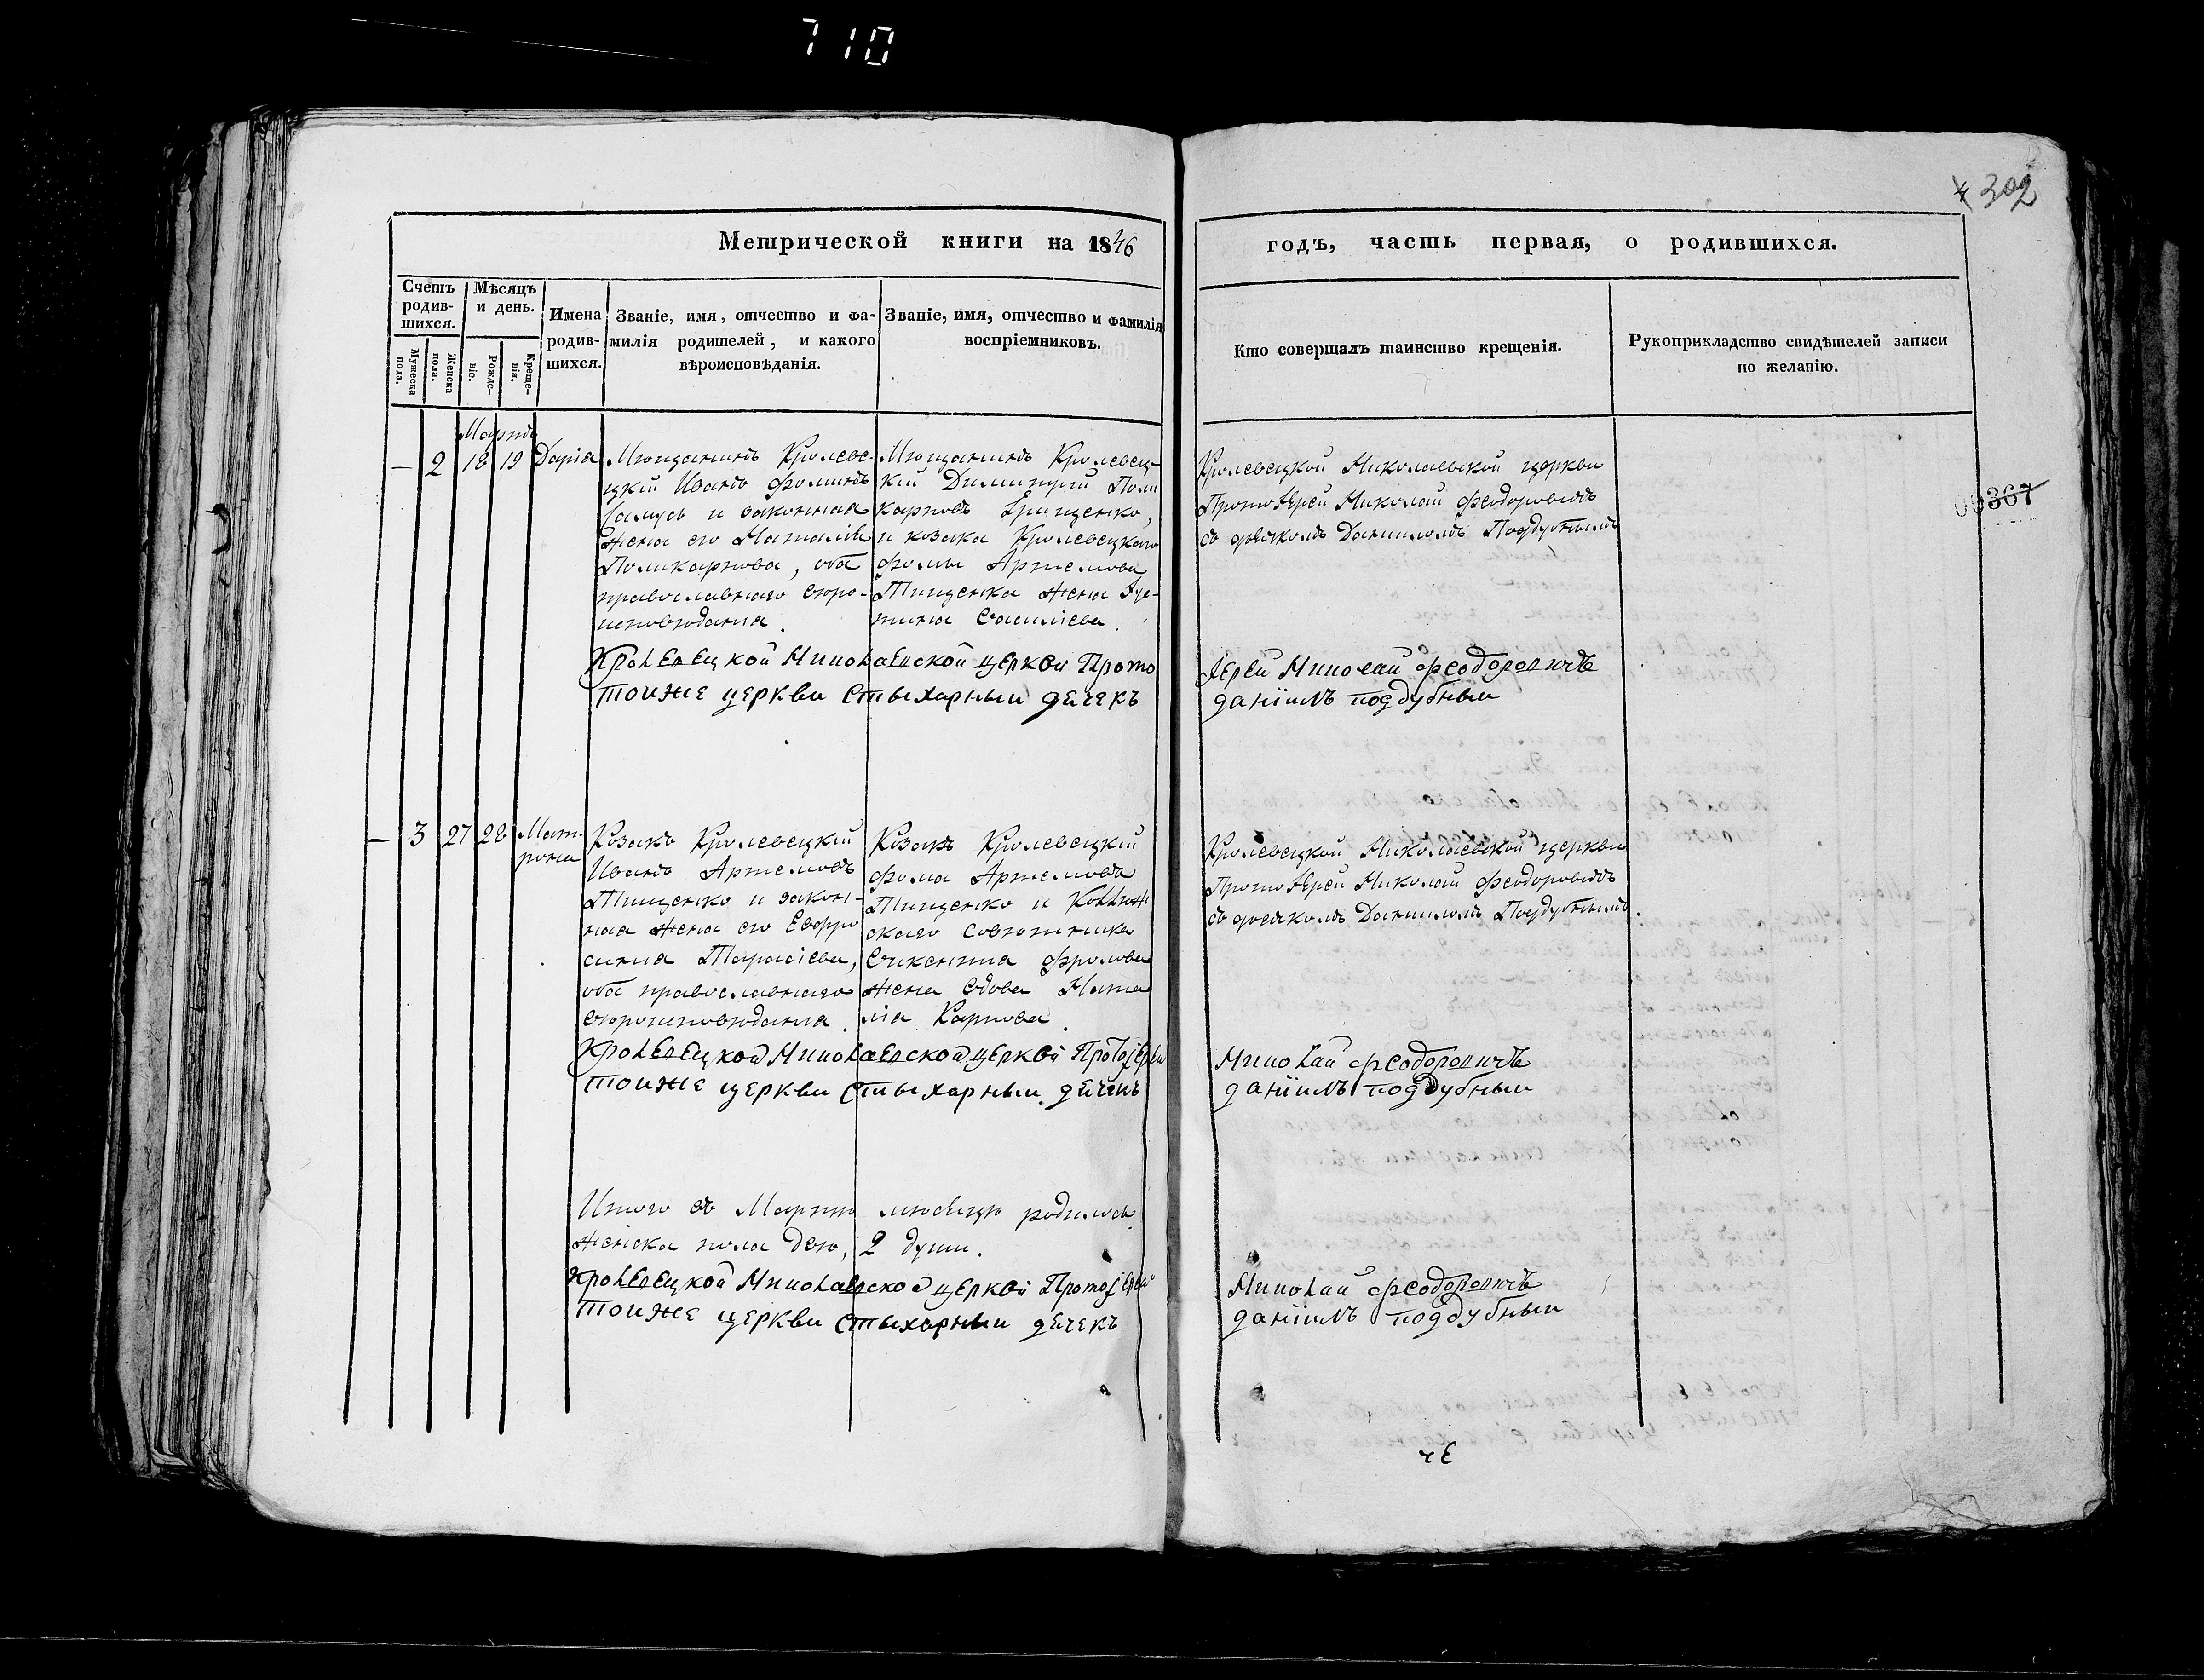 710
302
Метрической книги на 1846
годъ, часть первая, о родившихся.
Счетъ родив-шихся.
Мужеска пола.
Женска пола.
Мѣсяцъ и день.
Рождe-ніе.
Креще-нія.
Имена родив-шихся.
Званіе, имя, отчество и фа-
милія родителей, и какого
вѣроисповѣданія.
Званіе, имя, отчество и фамилія
воспріемниковъ.
Кто совершалъ таинство крещенія.
Рукоприкладство свидѣтелей записи
по желанію.
Мартъ
— 2 18 19 Дарія
Мѣщанинъ Кролеве-
цкій Иванъ Фоминъ
и законная
жена его Наталія
Поликарпова, оба
православнаго вѣро-
исповѣданія.
Мѣщанинъ Кролевец-
кій Димитрій Поли
карповъ Грищенко,
и козака Кролевецкаго
Фомы Артемова
Тищенка жена Іус-
тина Василіева.
Кролевецкой Николаевской церкви
ПротоІерей Николай Феодоровичъ
съ дьячкомъ Даниломъ Поддубнымъ
00367
Кролевецкой Николаевской церкви Прото
Іерей Николай Феодоровичъ
тоиже церкви стыхарный дячекъ
даніилъ поддубный
— 3 27 28 Мат-
рона
Козакъ Кролевецкій
Иванъ Артемовъ
Тищенко и закон-
ная жена его Евфро
синія Тарасіева,
оба православнаго
вѣроисповѣданія.
Козакъ Кролевецкій
Фома Артемовъ
Тищенко и
скаго совѣтника
Викентія Фролова
жена вдова Ната
лія Карпова.
Кролевецкой Николаевской церкви
ПротоІерей Николай Феодоровичъ
съ дьячкомъ Даниломъ Поддубнымъ.
Кролевецкой Николаевской церкви Протоіерей
Николай Феодоровичъ
тоиже церкви стыхарный дячекъ
даніилъ поддубный
Итого въ Мартѣ мѣсяцѣ родилось
женска пола двѣ, 2 души.
Кролевецкой Николаевской церкви Протоіерей
Николай Феодоровичъ
тоиже церкви стыхарный дячекъ
даніилъ поддубный